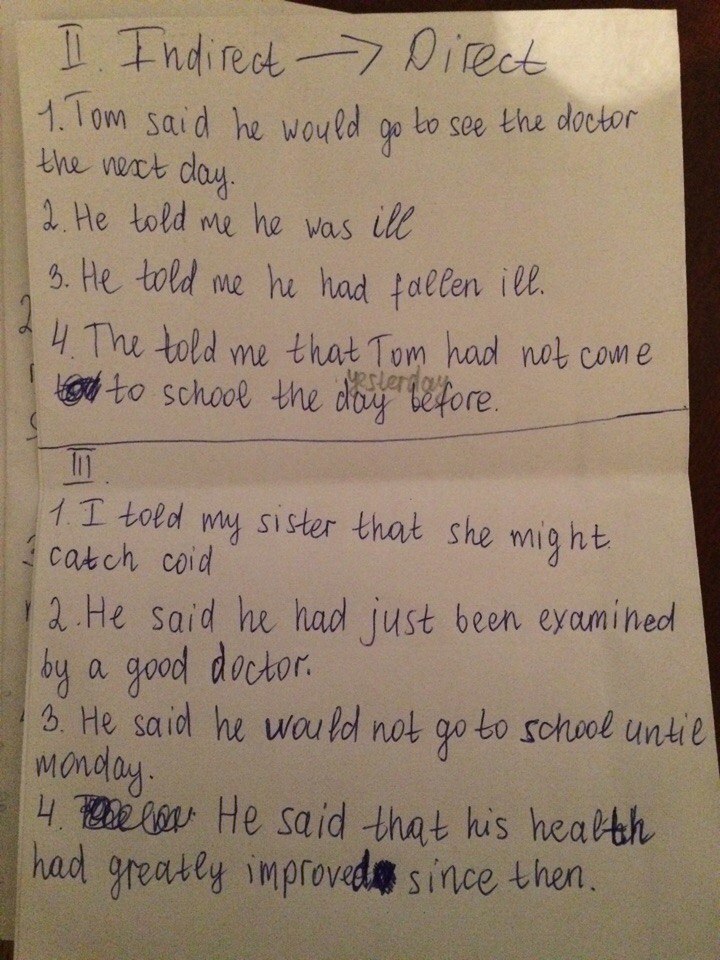 II. Indirect → Direct
1. Tom said he would go to see the doctor
the next day.
2. He told me he was ill
3. He told me he had fallen ill.
4. The told me that Tom had not come
yesterday
to school the day before.
III.
1. I told my sister that she might
catch coid
2. He said he had just been examined
by a good doctor.
3. He said he would not go to school until
monday.
4. He said that his health
had greatly improved since then.